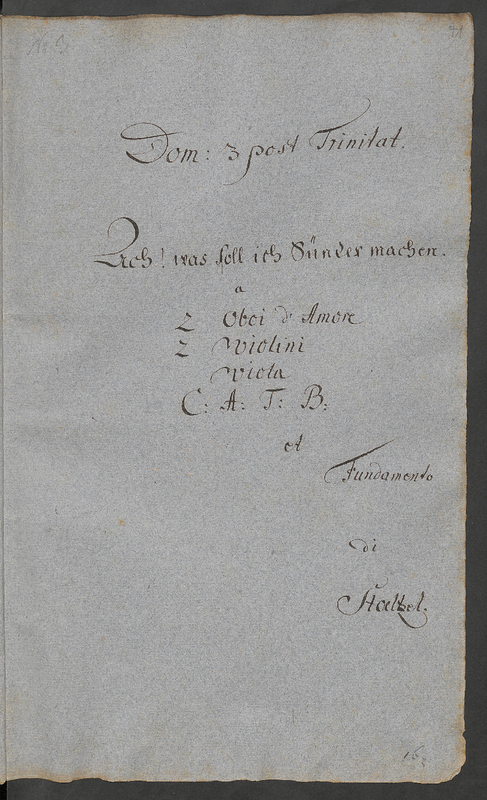 No 3
Dom: 3 post Trinitat.
Ach! was soll ich Sünder machen.
a
2 Oboi d'Amore
2 Violini
Viola
C: A: T: B:
et
Fundamento
di
Stoeltzel.